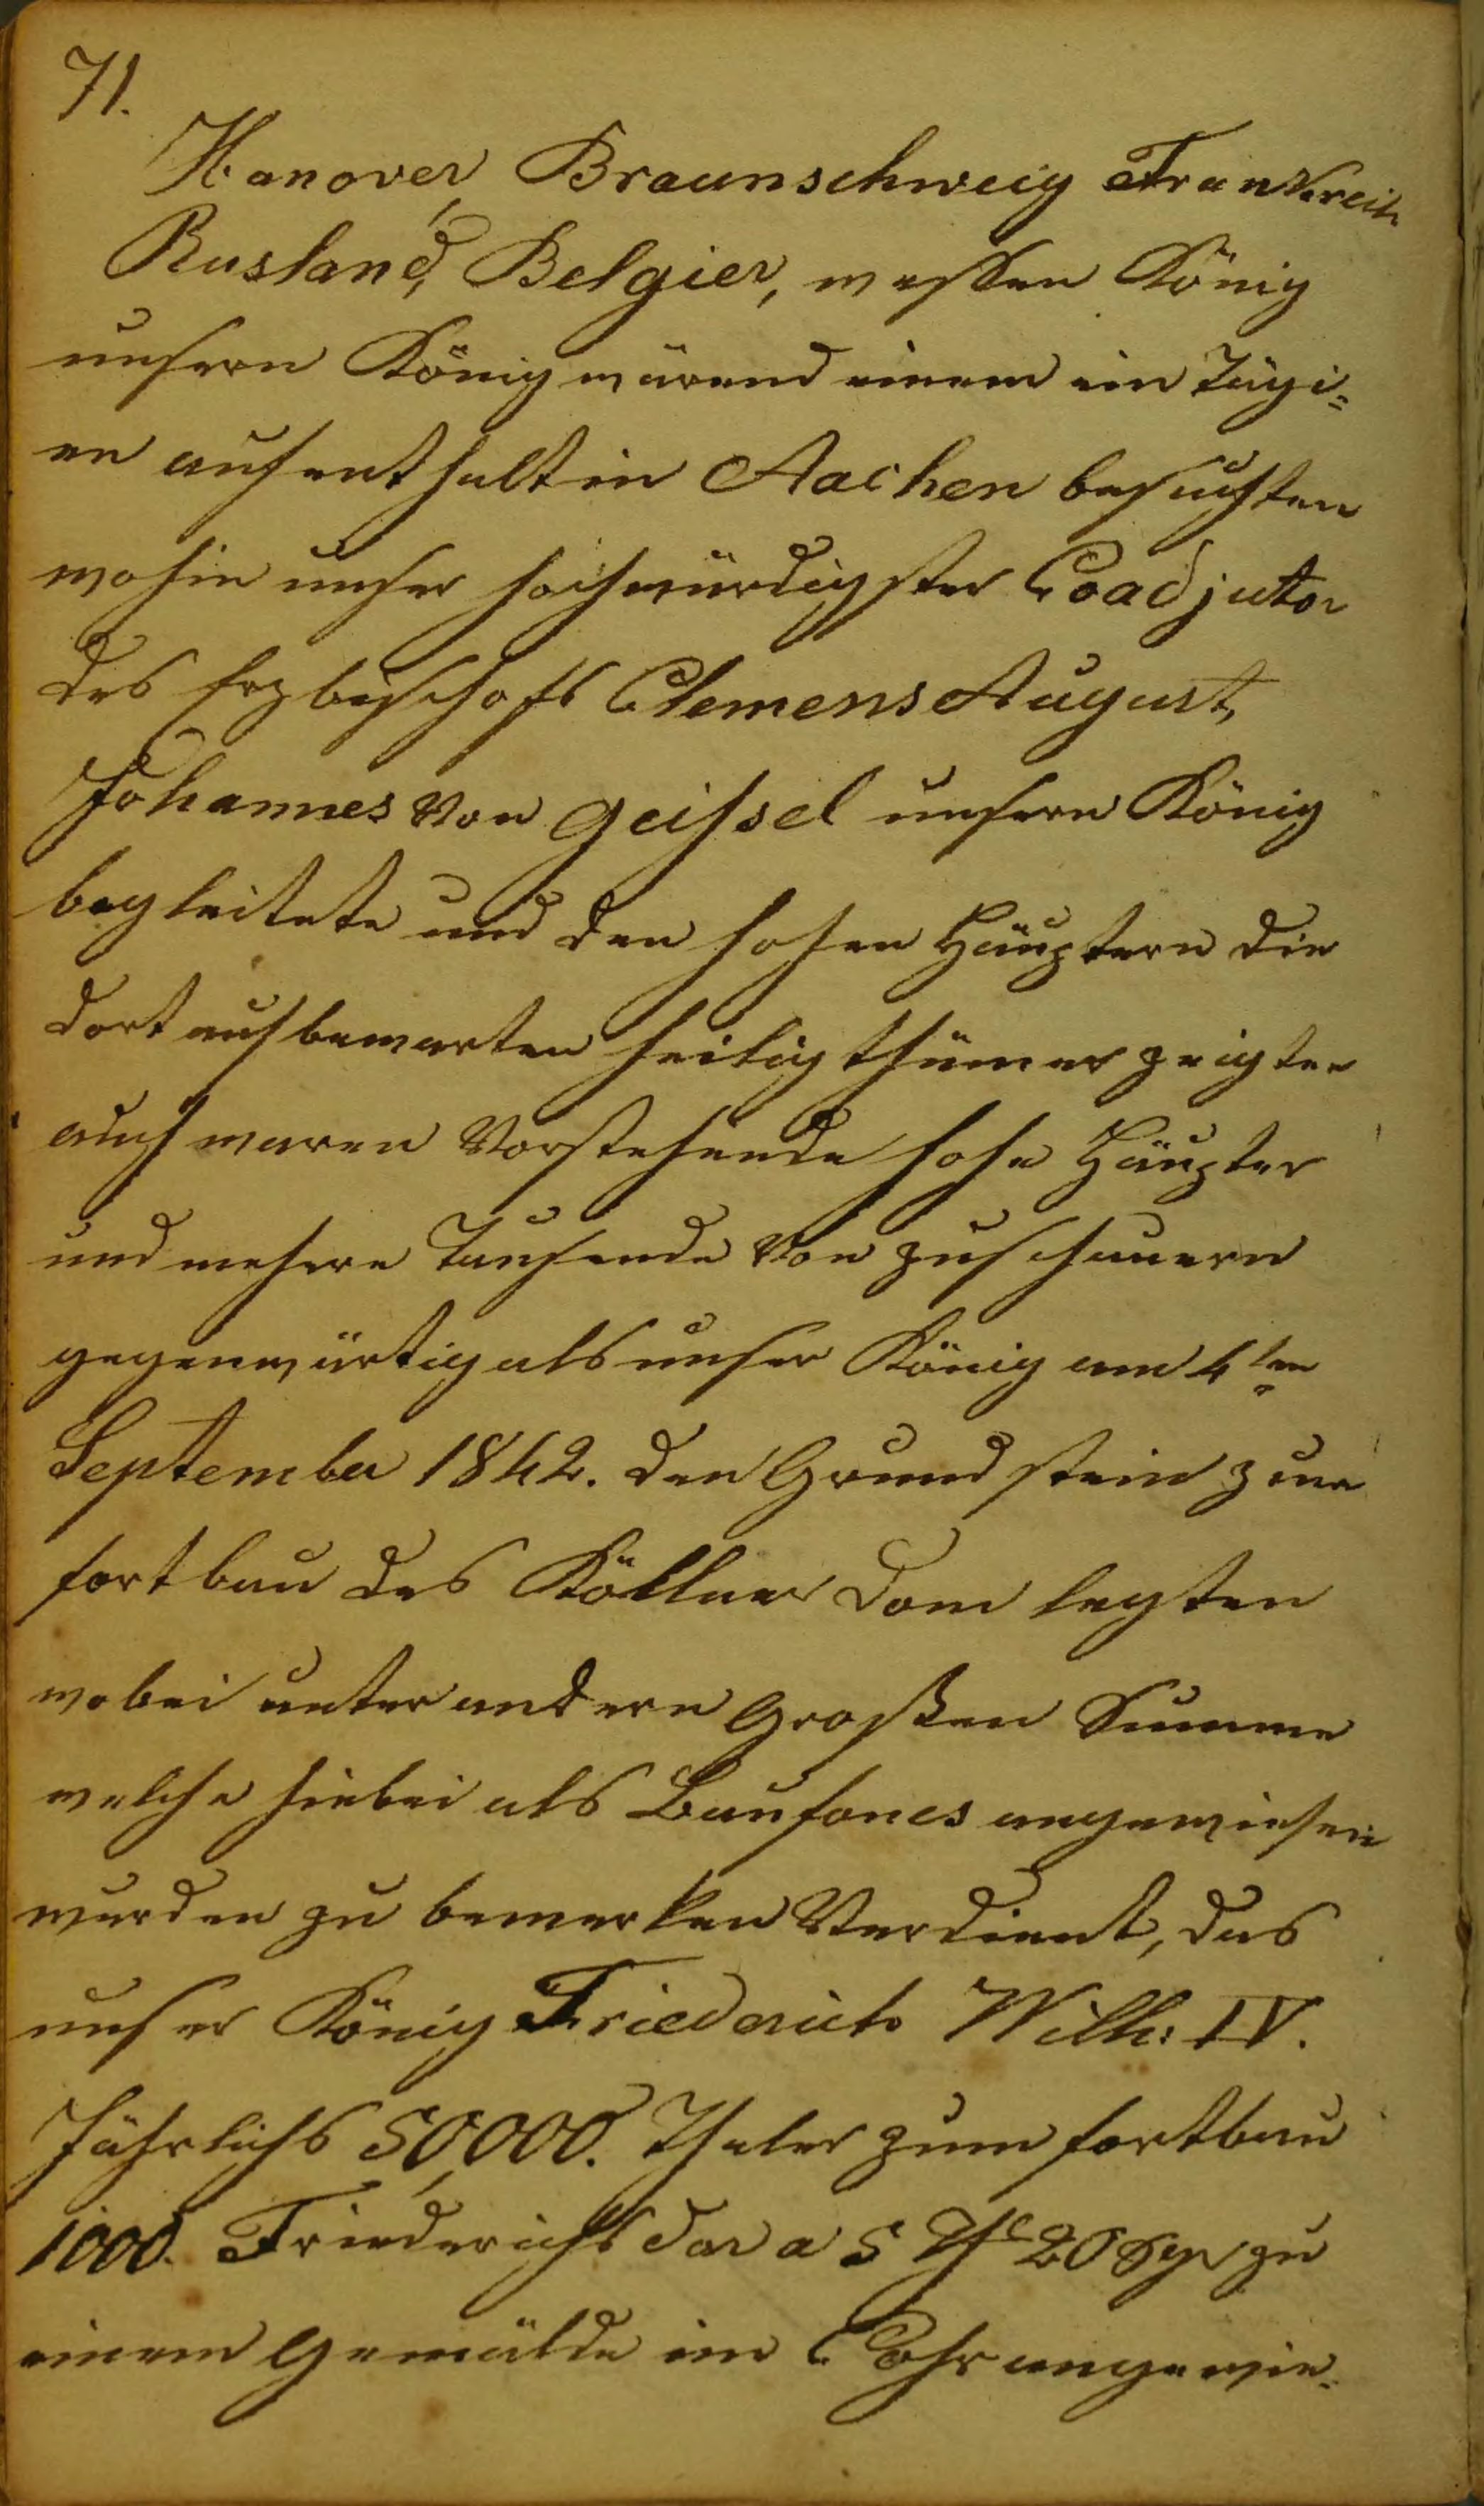 71.
Hanover, Braunschweig Frankreich
Rusland, Belgier, wessen König
unsern König wärend einem ein Tägi=
en aufenthalt in Aachen besuchten
wohin unser hochwürdigster Coadjutor
des Erzbischofs Clemens August,
Johannes von geissel unsern König
begleitete und den hohen Häuptern die
dort aufbewarten heiligthümer zeigten
auch waren Vorstehende hohe Häupter
und mehere Tausende von zuschauern
gegenwärtig als unser König am 4ten
September 1842. den Grundstein zum
fortbau des Köllner Dom legten
wobei unter andern Großen Summe
welche hiebei als Baufones angewiesen
wurden zu bemerken Verdient, das
unser König Friederich Wilh: IV.
Jährlichs 50,000. Thaler zum fortbau
1000. Friederichs dor a 5 Th 20 Sgr zu
einem Gemälde im Cohr angewie=